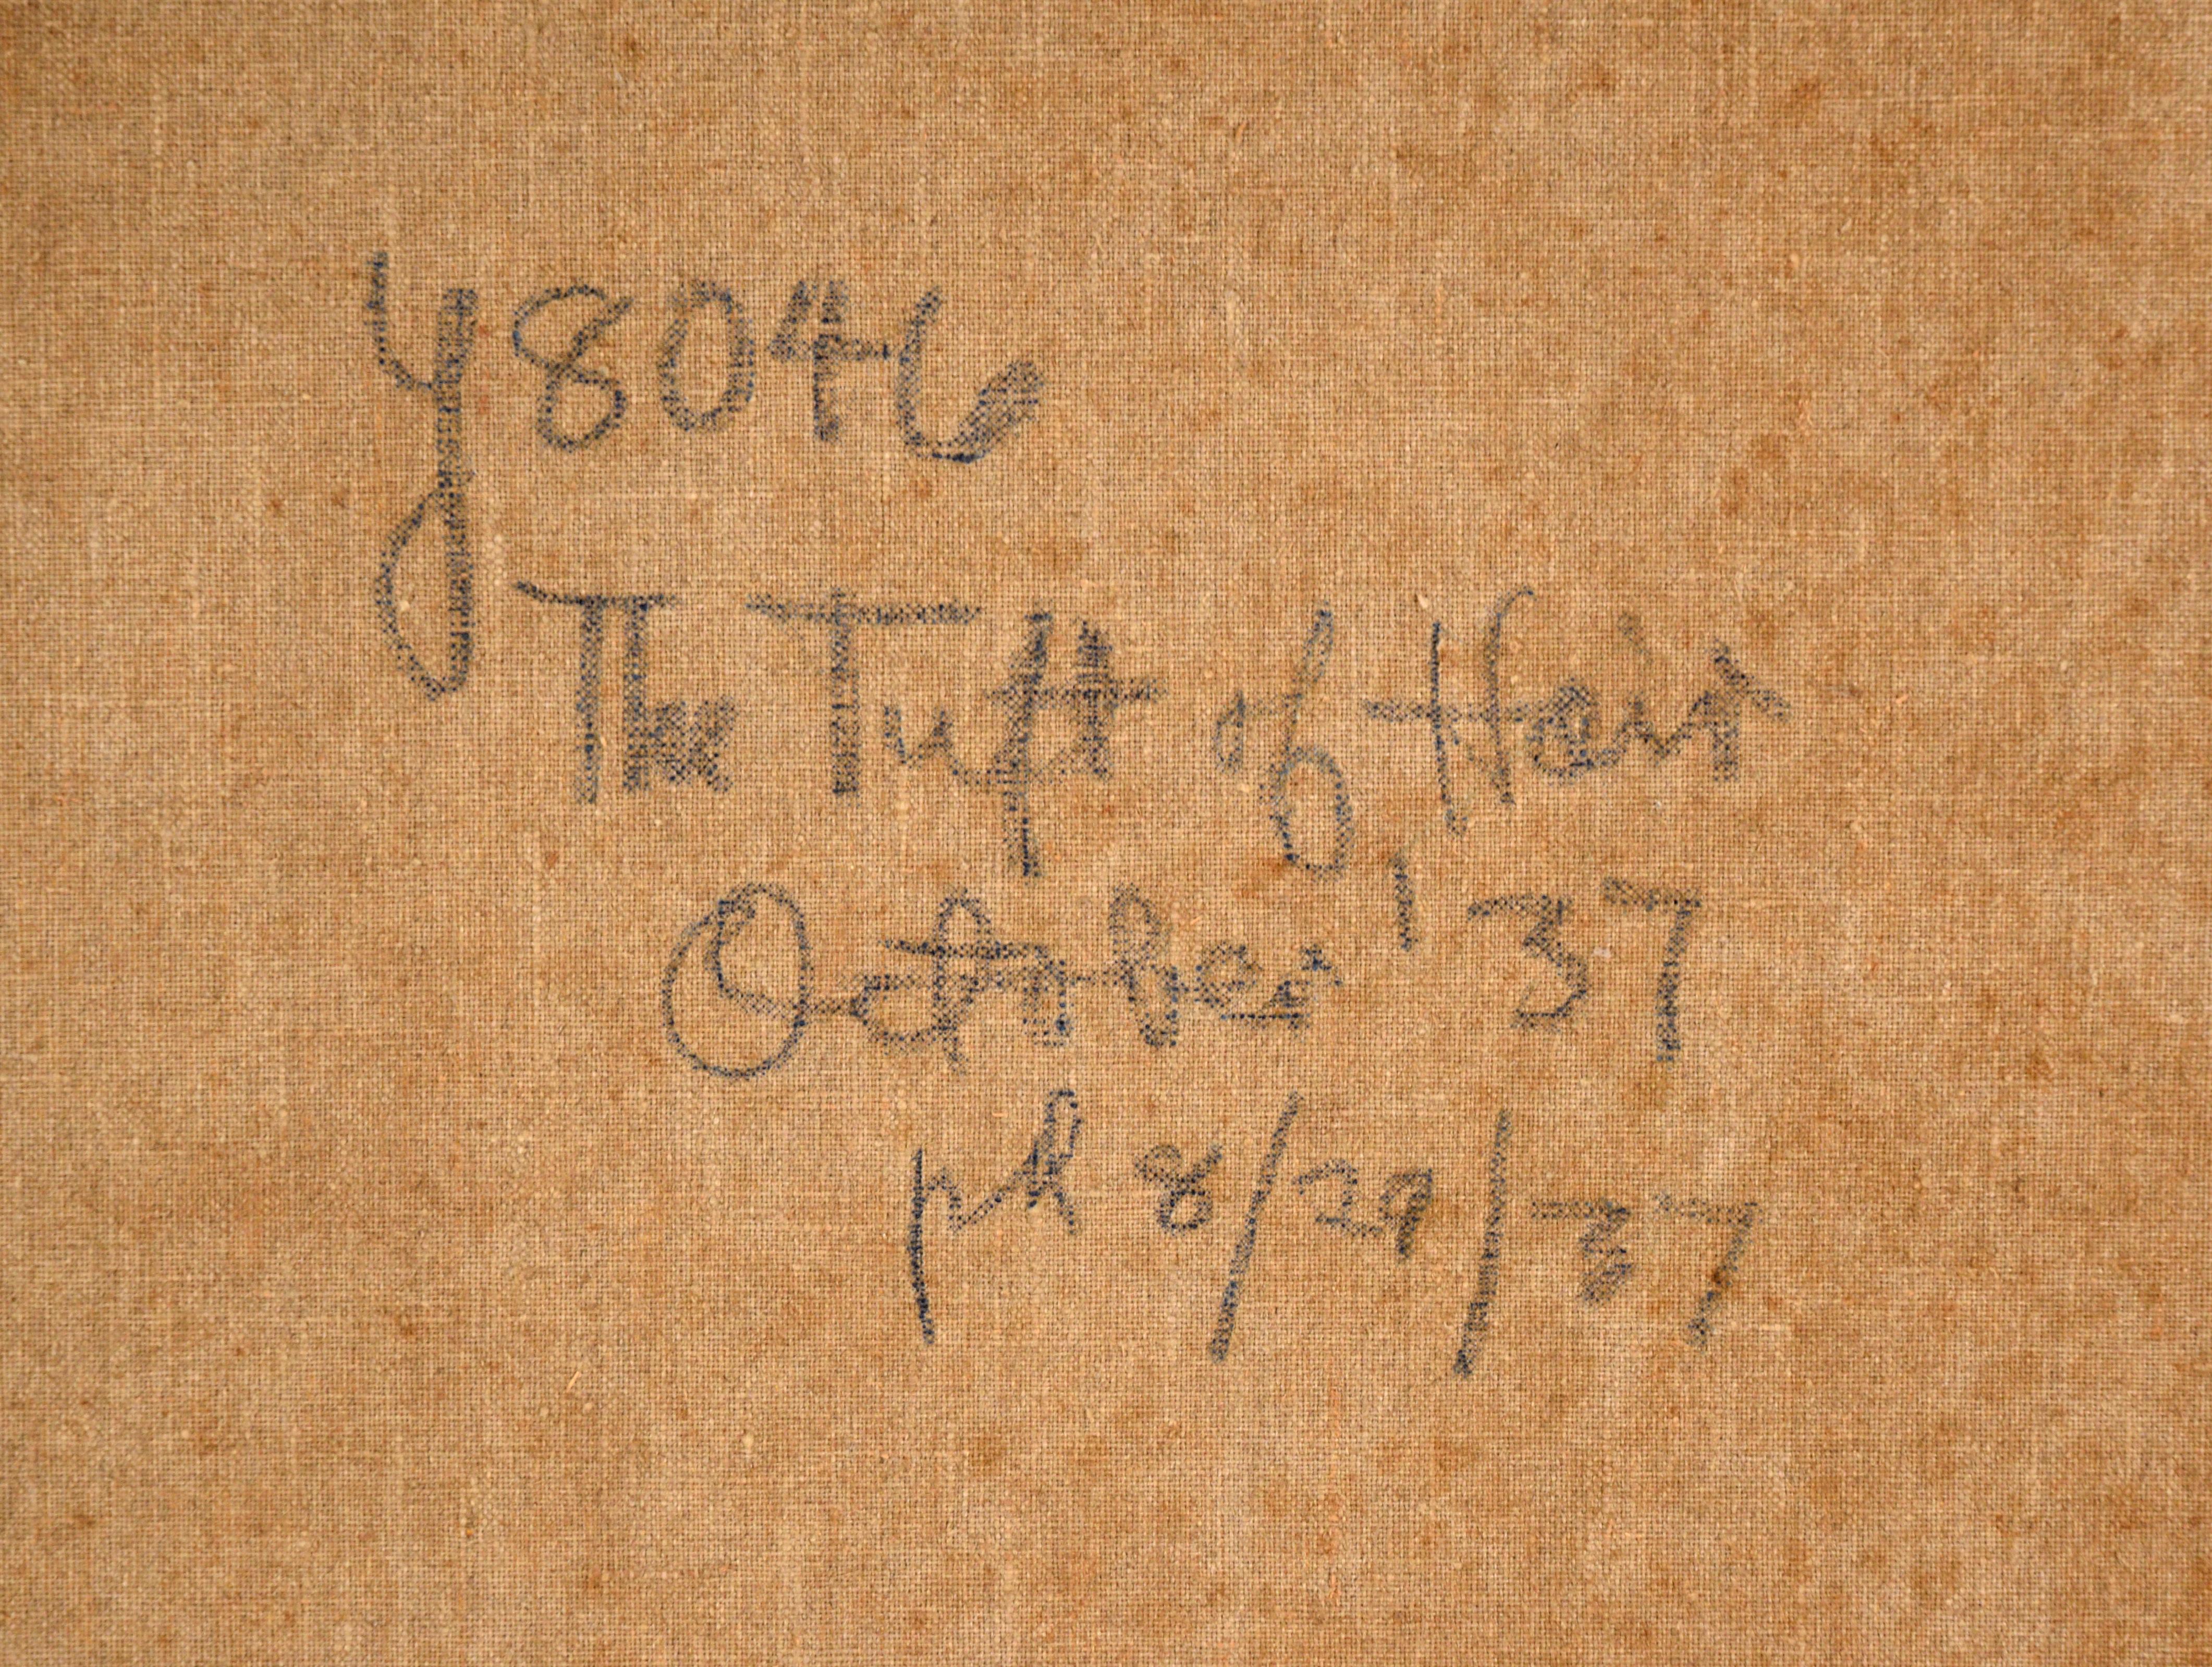 y8046
The Tuft of Hair
October '37
ph 8/29/37